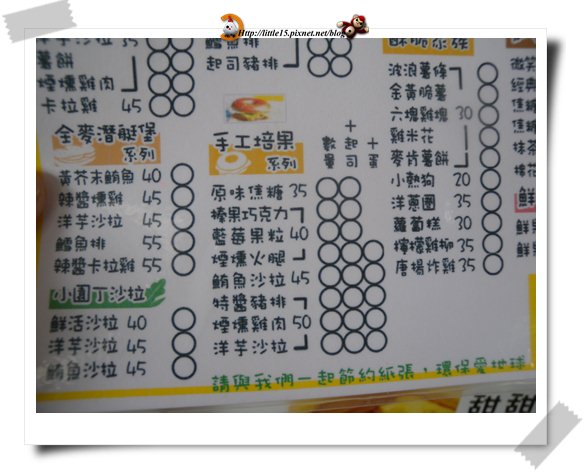 Http://little15.pixnet.net/blog
洋芋沙拉 35
薯餅
煙燻雞肉
卡拉雞 45
全麥潛艇堡
系列
黃芥末鮪魚 40
辣醬燻雞 45
洋芋沙拉 45
鱈魚排 55
辣醬卡拉雞 55
小園丁沙拉
鮮活沙拉 40
洋芋沙拉 45
鮪魚沙拉 45
鱈魚排
起司豬排
手工培果
系列
數量
+起司
+蛋
原味焦糖 35
榛果巧克力
藍莓果粒 40
煙燻火腿
鮪魚沙拉 45
特醬豬排
煙燻雞肉 50
洋芋沙拉
波浪薯條
金黃脆薯
六塊雞塊 30
雞米花
麥肯薯餅
小熱狗 20
洋蔥圈 35
蘿蔔糕 30
檸檬雞柳 35
唐揚炸雞 35
微笑
經典
焦糖
抹茶
棉花
鮮
鮮果
請與我們一起節約紙張，環保愛地球
甜甜